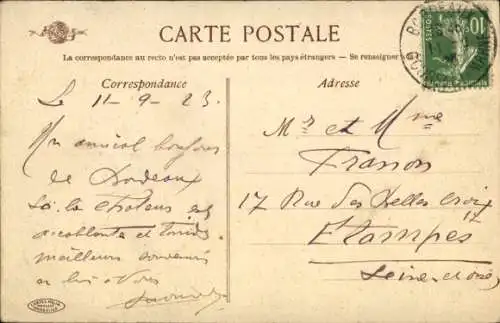 CARTE POSTALE
La correspondance au recto n'est pas acceptée par tous les pays étrangers — Se renseigner
Correspondance
Adresse
Le 11-9-23
Un amical bonjour
de Bordeaux
la chaleur est
accablante et torride
meilleurs souvenirs
Mr et Mme
17 Rue des Belles Croix
17
Etampes
Seine et Oise
10
POSTES
BORDEAUX